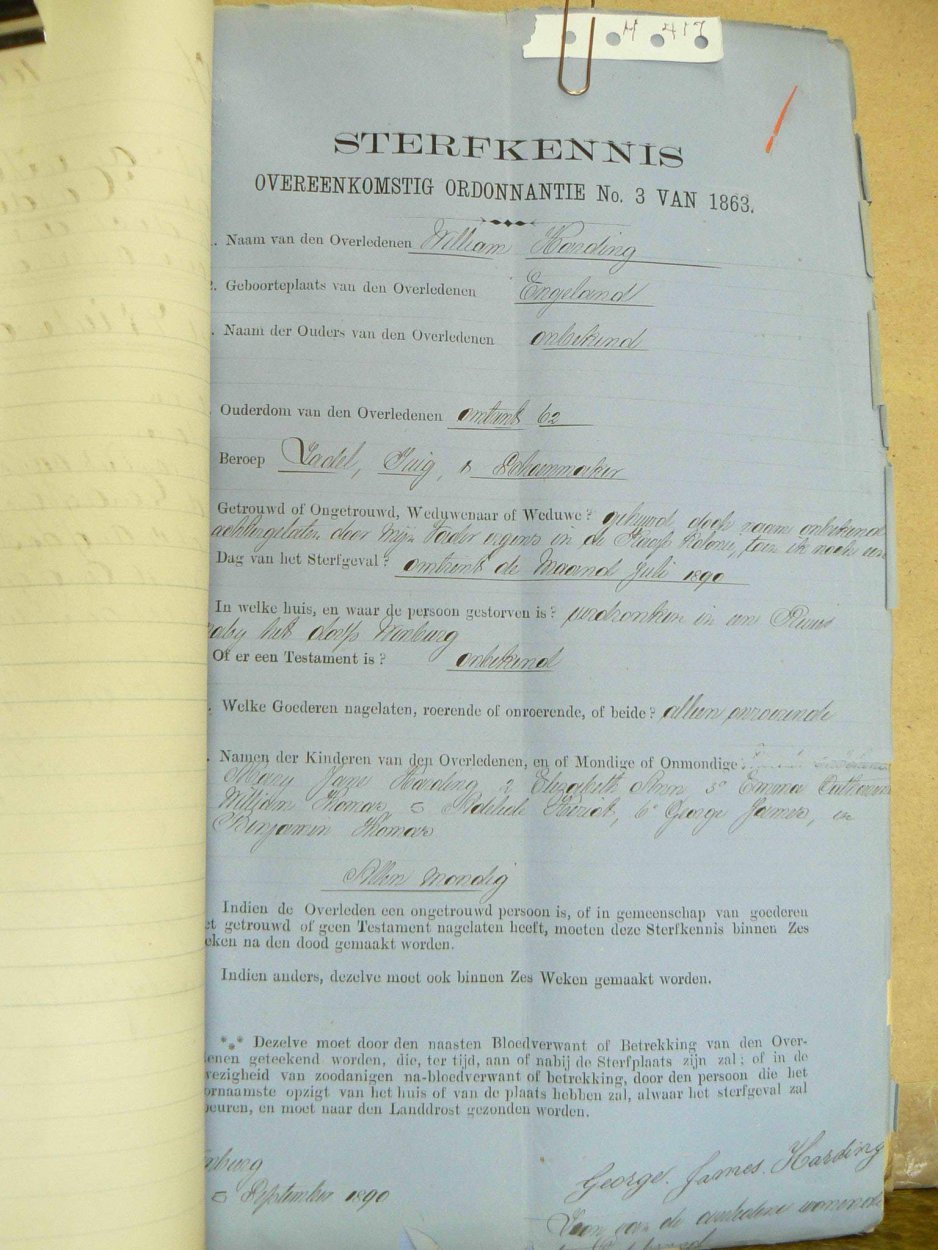 H 417
STERFKENNIS
OVEREENKOMSTIG ORDONNANTIE No. 3 VAN 1863.
. Naam van den Overledenen William Harding
. Geboorteplaats van den Overledenen Engeland
. Naam der Ouders van den Overledenen onbekend
Ouderdom van den Overledenen omtrent 62
Beroep Zadel, Tuig, & Schoenmaker
Getrouwd of Ongetrouwd, Weduwenaar of Weduwe? gehuwd, doch naam onbekend
achtergelaten door mijn Vader ergens in de Kaap Kolonie, toen ik noch een
Dag van het Sterfgeval? omtrent de Maand Juli 1890
In welke huis, en waar de persoon gestorven is? verdronken in een Rivier
naby het dorp Winburg
Of er een Testament is? onbekend
. Welke Goederen nagelaten, roerende of onroerende, of beide? alleen onroerende
. Namen der Kinderen van den Overledenen, en of Mondige of Onmondige:
Mary Jane Harding 2 Elizabeth Ann 3 Emma Catherina
William Thomas 5 6 George James, en
Benjamin Thomas
Allen mondig
Indien de Overleden een ongetrouwd persoon is, of in gemeenschap van goederen
et getrouwd of geen Testament nagelaten heeft, moeten deze Sterfkennis binnen Zes
eken na den dood gemaakt worden.
Indien anders, dezelve moet ook binnen Zes Weken gemaakt worden.
*** Dezelve moet door den naasten Bloedverwant of Betrekking van den Over-
lenen geteekend worden, die, ter tijd, aan of nabij de Sterfplaats zijn zal; of in de
wezigheid van zoodanigen na-bloedverwant of betrekking, door den persoon die het
ornaamste opzigt van het huis of van de plaats hebben zal, alwaar het sterfgeval zal
beuren, en moet naar den Landdrost gezonden worden.
nburg
5 September 1890
George James Harding
Zoon van de overledene wonende